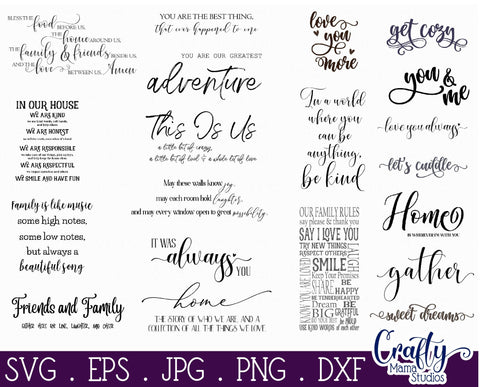 BLESS THE food BEFORE US,
THE home AROUND US,
THE family & friends BESIDE US,
AND THE love BETWEEN US, Amen
IN OUR HOUSE
WE ARE KIND
WE ARE HONEST
WE ARE RESPONSIBLE
WE ARE RESPECTFUL
WE SMILE AND HAVE FUN
Family is like music
some high notes,
some low notes,
but always a
beautiful song
Friends and Family
GATHER HERE FOR LOVE, LAUGHTER, AND CHEER
YOU ARE THE BEST THING,
that ever happened to me
YOU ARE OUR GREATEST
adventure
This Is Us
a little bit of crazy,
a little bit of loud & a whole lot of love
May these walls know joy,
may each room hold laughter,
and may every window open to great possibility.
IT WAS
always YOU
home
THE STORY OF WHO WE ARE AND A
COLLECTION OF ALL THE THINGS WE LOVE
love
you
more
In a world
where you
can be
anything,
be kind
OUR FAMILY RULES
say please & thank you
SAY I LOVE YOU
TRY NEW THINGS
RESPECT OTHERS
SMILE
Keep Your Promises
SHARE
HUG
BE HAPPY
BE TENDERHEARTED
Dream
BIG
BE GRATEFUL
BE KIND
DO YOUR BEST
BE HUMBLE
USE KIND WORDS
LAUGH
get cozy
you &
me
love you always
let's cuddle
Home
IS WHEREVER I'M WITH YOU
gather
sweet dreams
SVG . EPS . JPG . PNG . DXF
Crafty
Mama
Studios